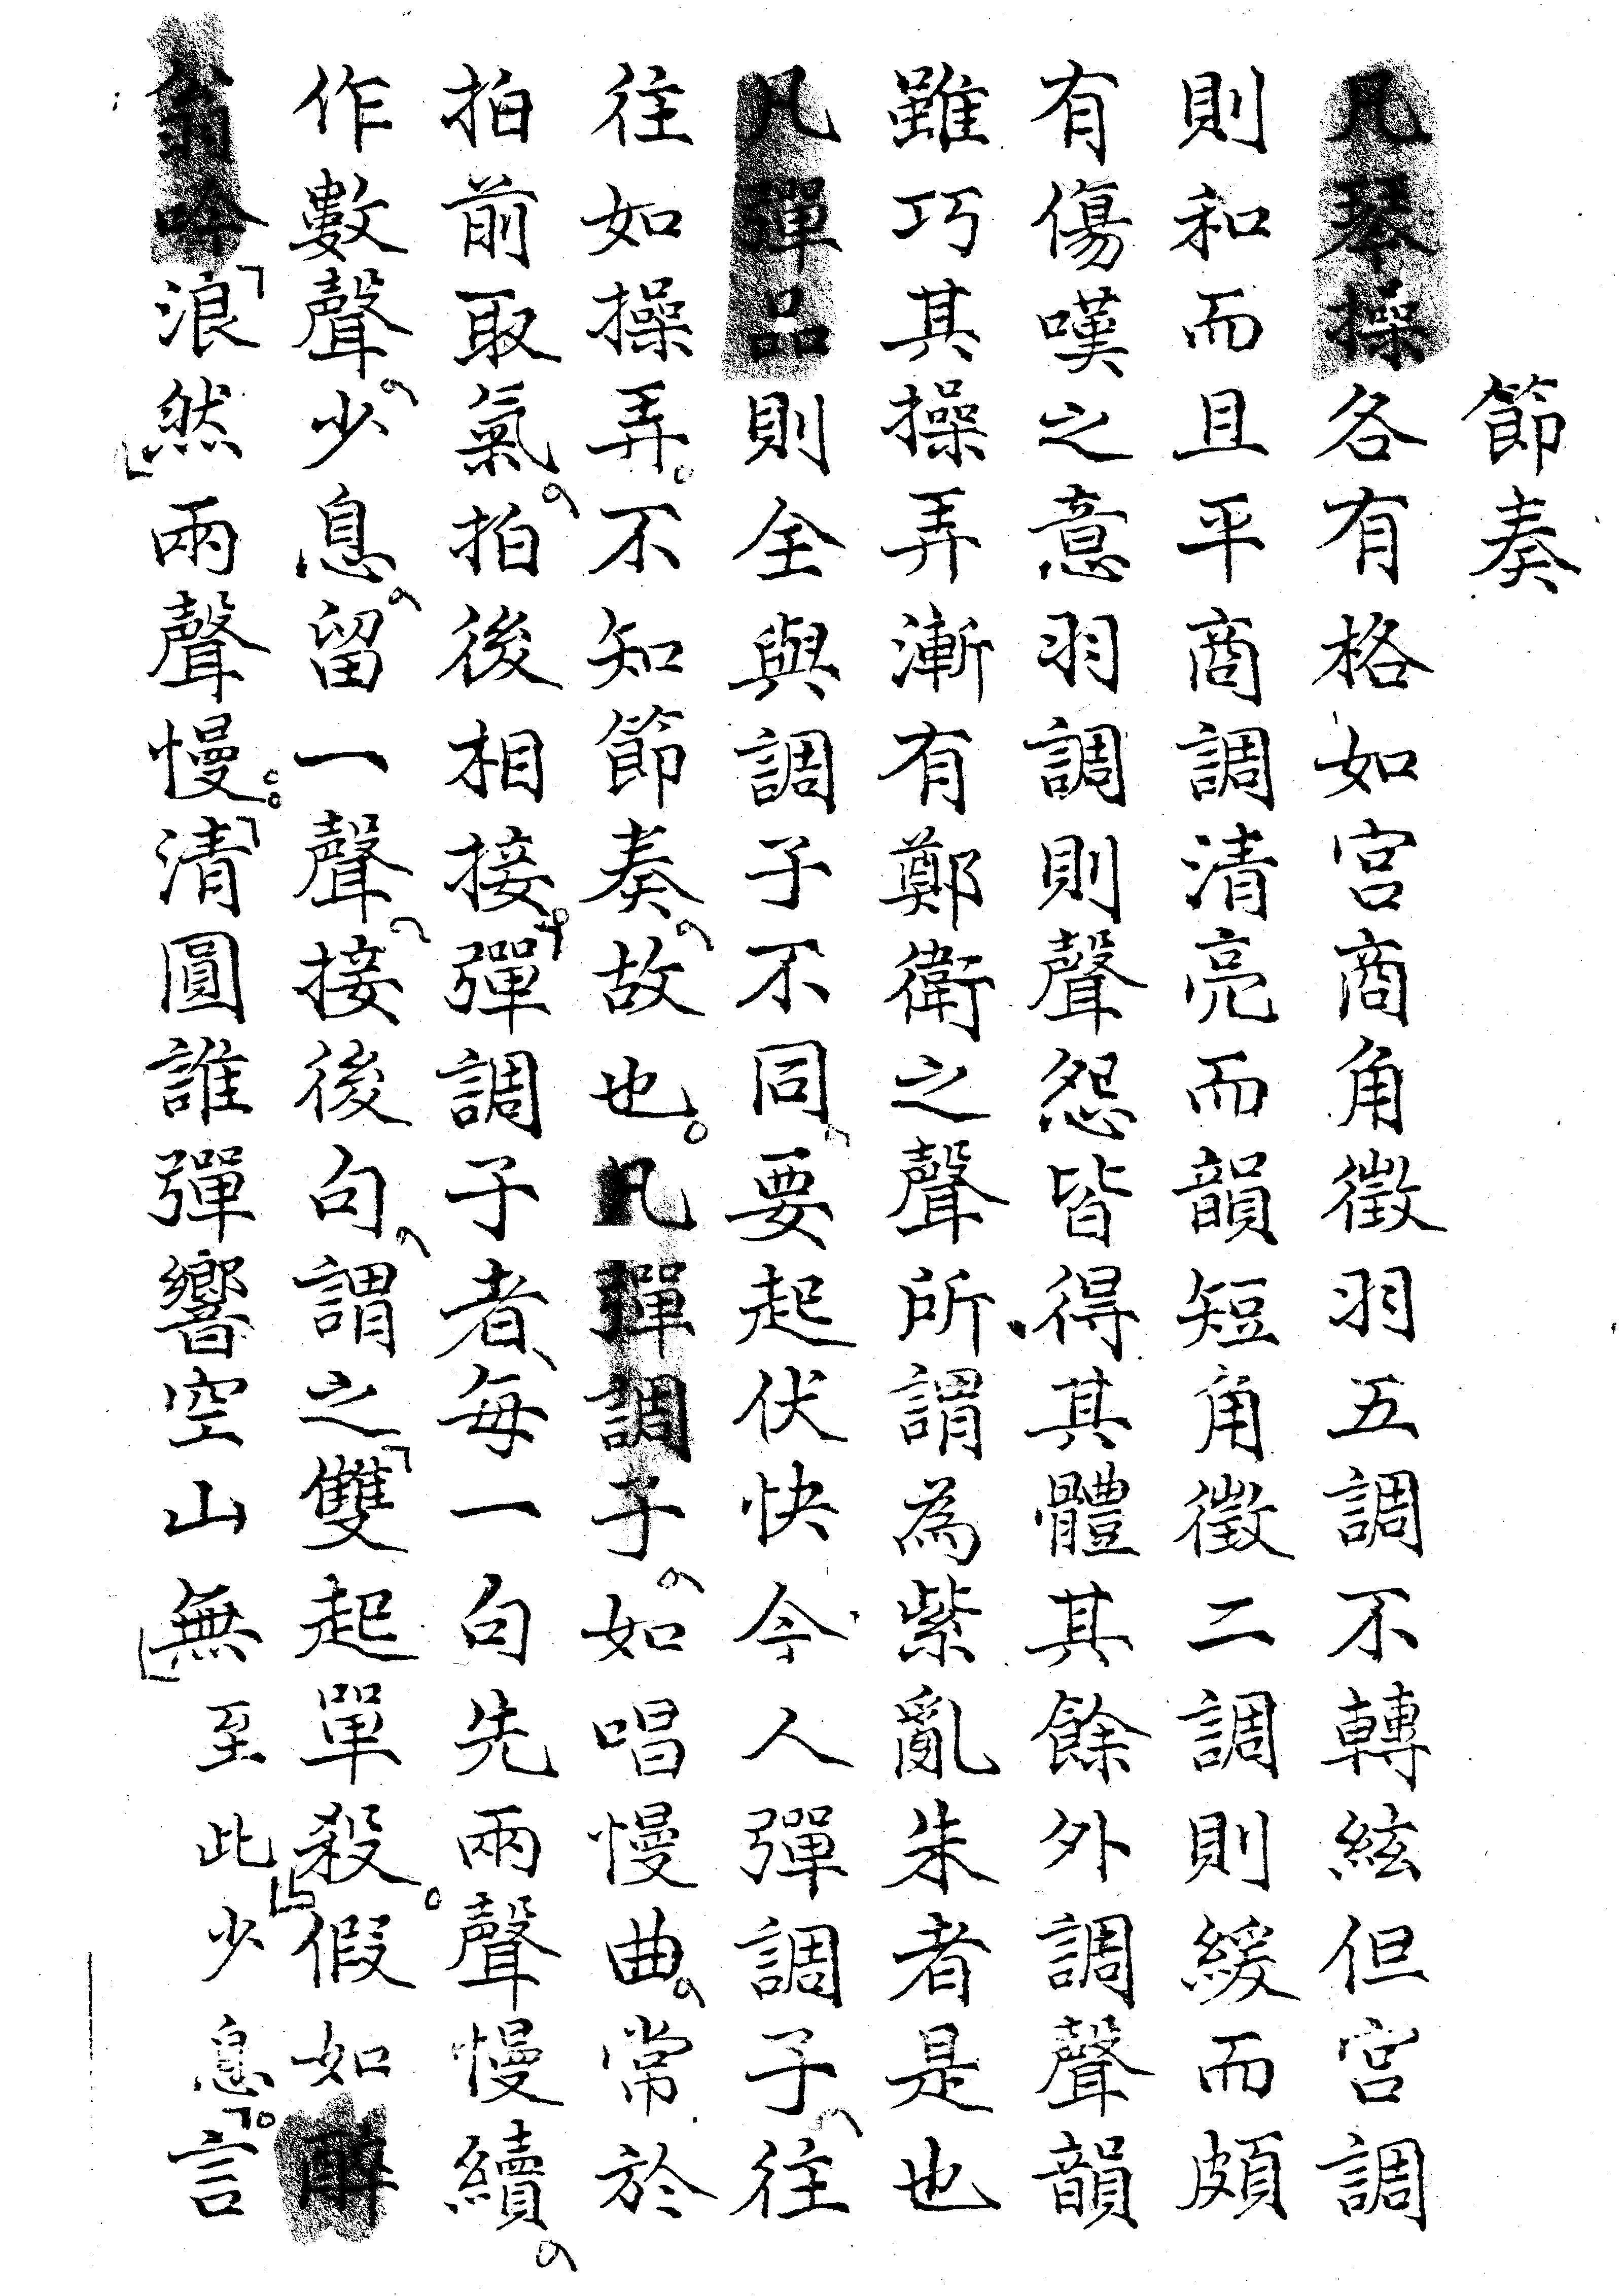 節奏
凡琴操各有格如宫商角徵羽五調不轉絃但宫調
則和而且平商調清亮而韻短角徵二調則緩而頗
有傷嘆之意羽調則聲怨皆得其體其餘外調聲韻
雖巧其操弄漸有鄭衛之聲所謂為紫亂朱者是也
凡彈品則全與調子不同要起伏快今人彈調子往
往如操弄。不知節奏故也。凡彈調子如唱慢曲常於
拍前取氣拍後相接彈調子者、每一句先兩聲慢續
作數聲少息留一聲接後句謂之「雙起單殺」。假如醉
翁吟「浪然」兩聲慢。。「清圓誰彈響空山無」至此少息。「言